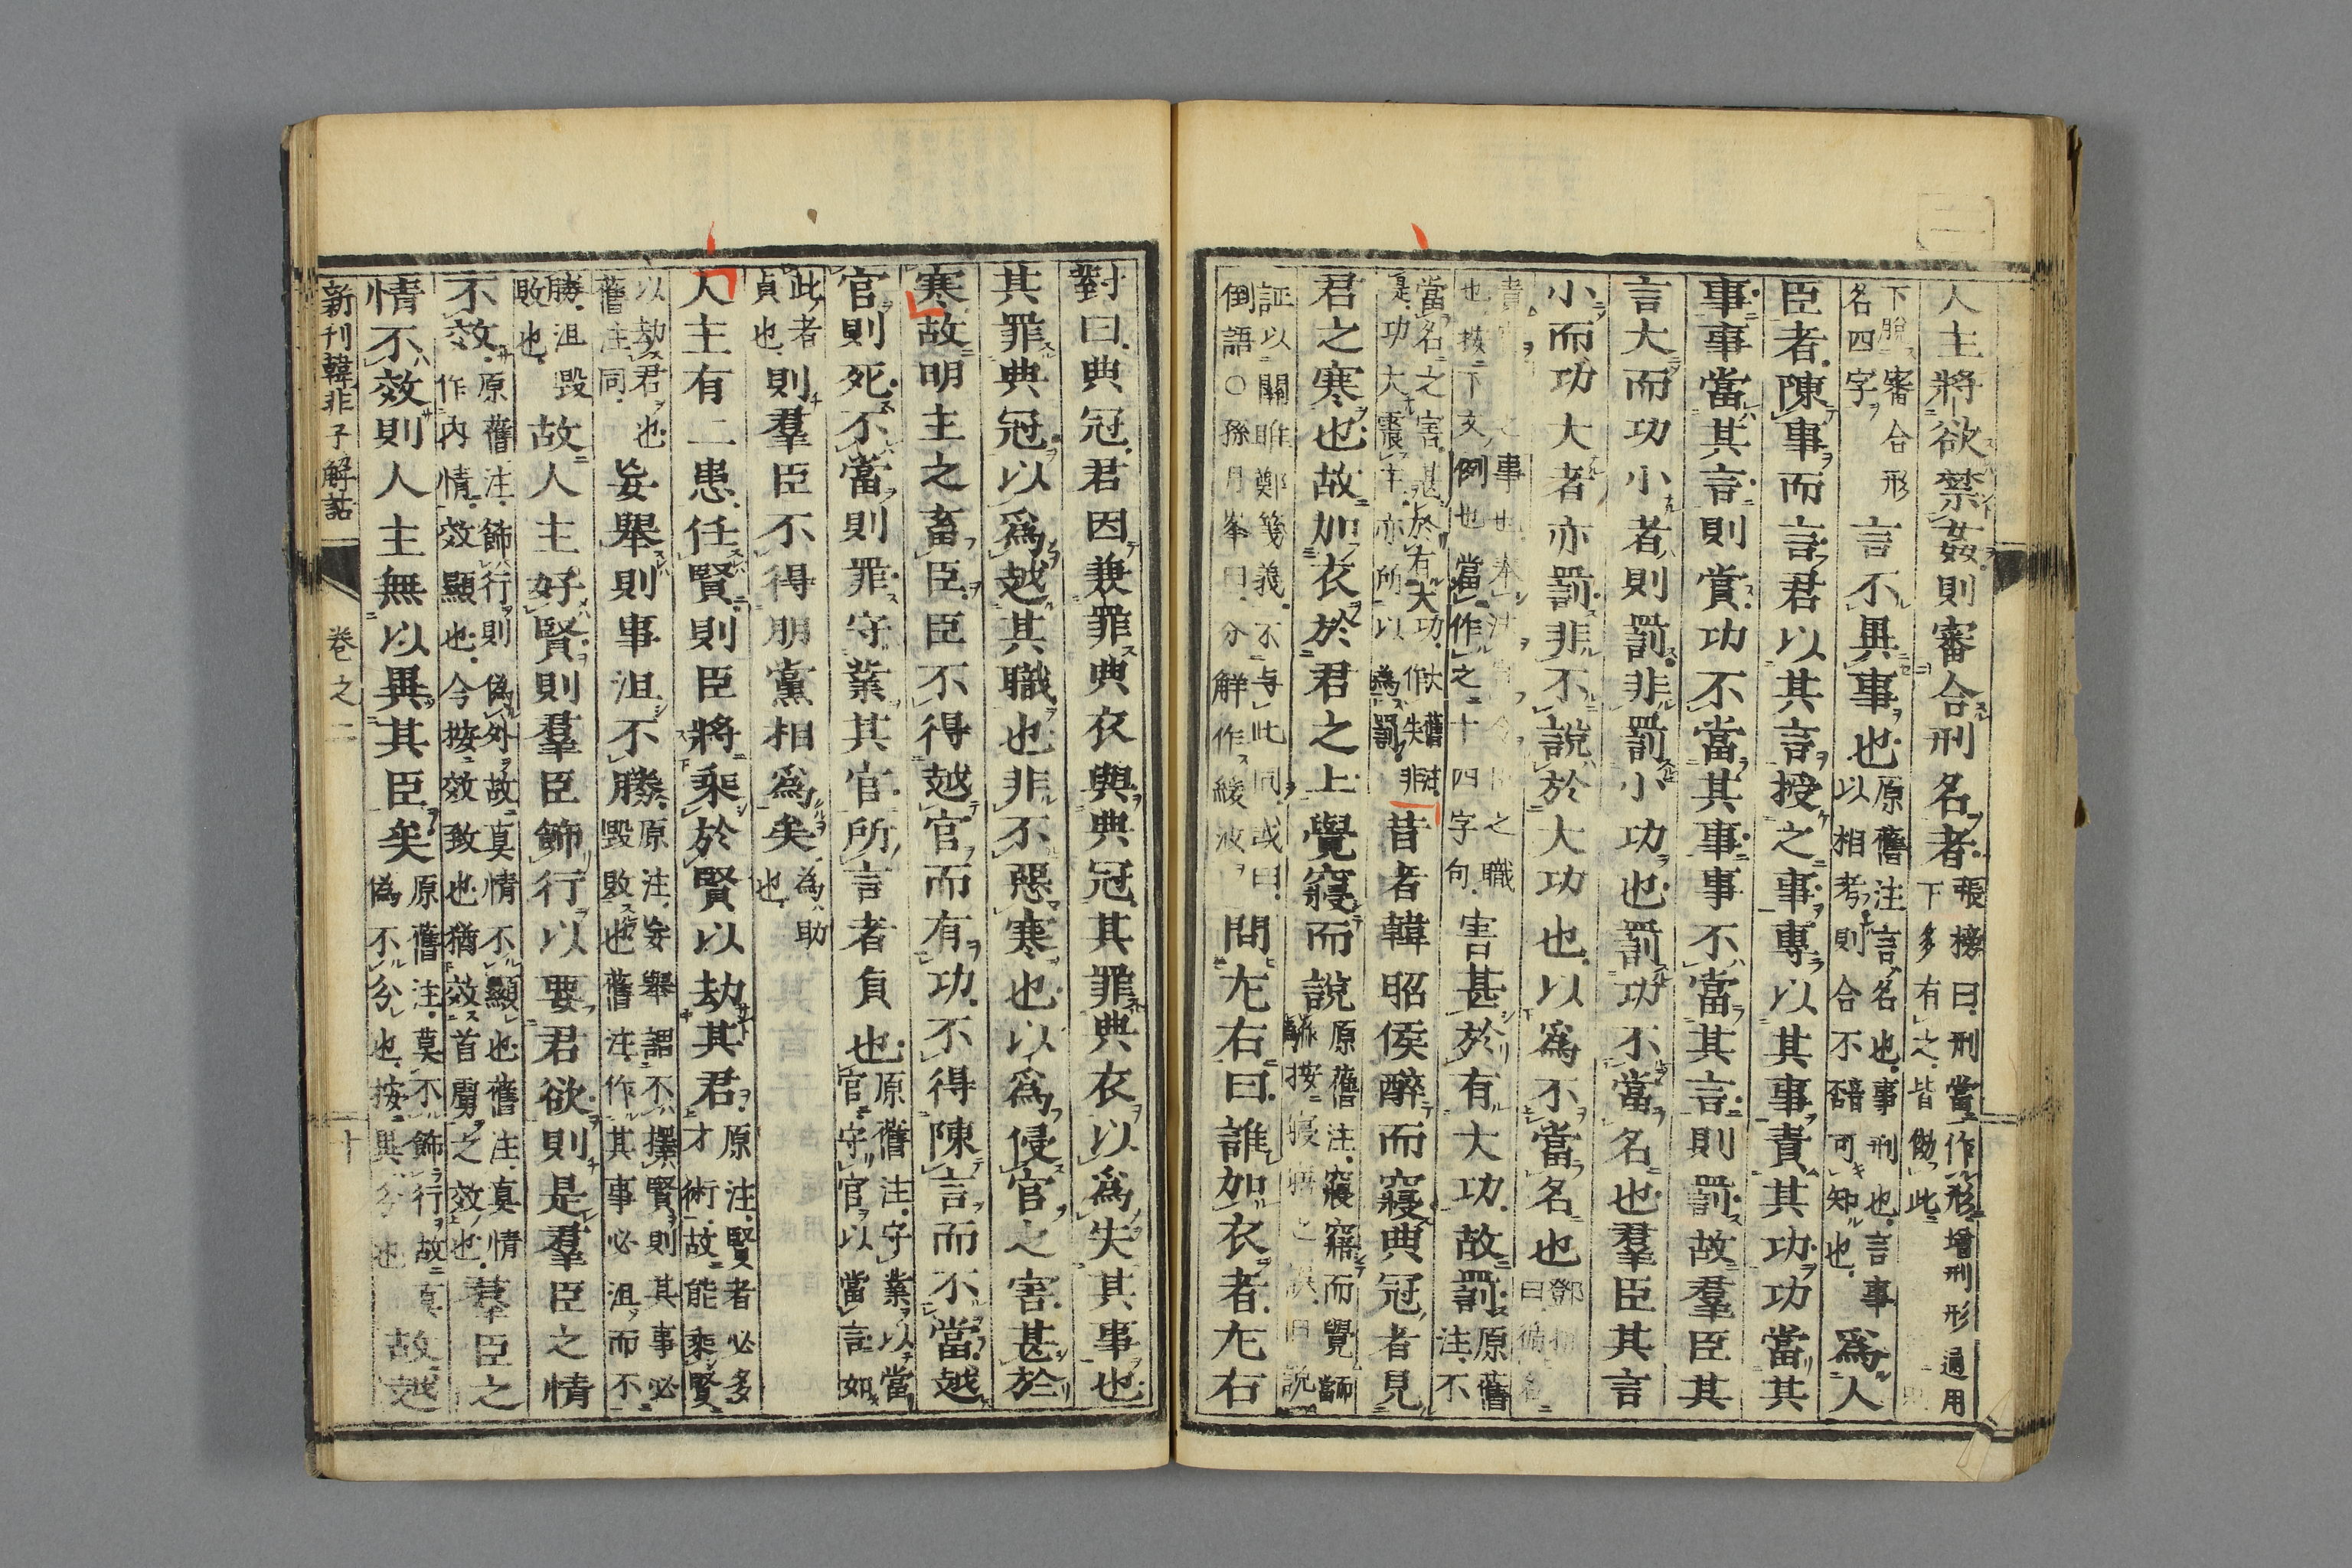 人主將欲禁姦則審合刑名者張榜曰刑當作形增刑形通用
下多有之皆倣此
下脫審合形
名四字言不異事也原舊注言名也事刑也言事
以相考則合不合可知也為人
臣者陳事而言君以其言授之事專以其事責其功功當其
事事當其言則賞功不當其事事不當其言則罰故羣臣其
言大而功小者則罰非罰小功也罰功不當名也羣臣其言
小而功大者亦罰非不說於大功也以爲不當名也
也按下文例也當作之二十四字句害甚於有大功故罰原舊
注不
當名之害甚於有大功
是功大震主亦所以爲罰昔者韓昭侯醉而寢典冠者見
君之寒也故加衣於君之上覺寢而說原舊注寢寤而覺
証以關雎鄭箋義不与此同或曰
倒語○孫月峯曰分解作緩波問左右曰誰加衣者左右
對曰典冠君因兼罪典衣與典冠其罪典衣以爲失其事也
其罪典冠以爲越其職也非不惡寒也以爲侵官之害甚於
寒故明主之畜臣臣不得越官而有功不得陳言而不當越
官則死不當則罪守業其官所言者貞也原舊注守業以當
官守官以當言如
此者
貞也則羣臣不得朋黨相爲矣爲助
也
人主有二患任賢則臣將乘於賢以劫其君原注賢者必多
才術故能乘賢
以劫君也
舊注同妄舉則事沮不勝原注妄舉謂不擇賢則其事必
毀敗也舊注作其事必沮而不
勝沮毀
敗也故人主好賢則羣臣飾行以要君欲則是羣臣之情
不效原舊注飾行則偽外故真情不顯也舊注真情
作内情效顯也今按效致也猶效首虜之效也羣臣之
情不效則人主無以異其臣矣原舊注莫不飾行故真
偽不分也按異分也故越
新刊韓非子解詁 卷之二 十